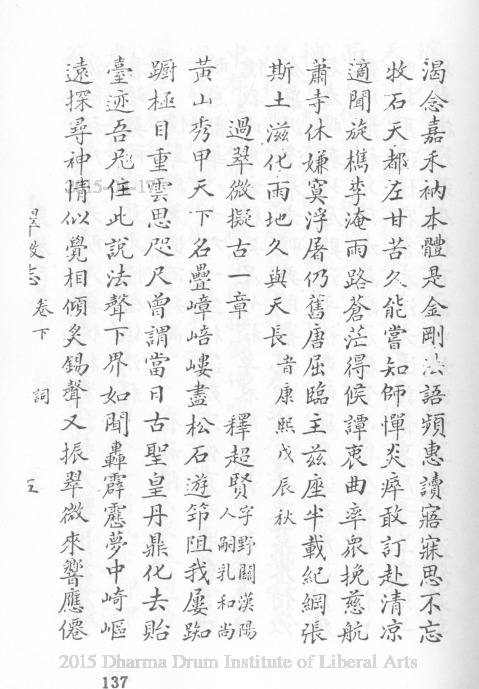 渴念嘉禾衲本體是金剛法語頻惠讀寤寐思不忘
牧石天都左甘苦久能嘗知師憚炎瘁敢訂赴清凉
適聞旋檇李淹雨路蒼茫得候譚衷曲率眾挽慈航
蕭寺休嫌寞浮屠仍舊唐屈臨主兹座半載紀綱張
斯土滋化雨地久與天長 旹康熙戊辰秋
過翠微擬古一章 釋超賢 字野關漢陽人嗣乳和尚
黃山秀甲天下名疊嶂崆嶁盡松石遊笻阻我屢踟
蹰極目重雲思咫尺曾謂當日古聖皇丹鼎化去貽
臺迹吾兄住此說法聲下界如聞轟霹靂夢中崎嶇
遠探尋神情似覺相傾炙錫聲又振翠微來響應僊
卷下 詞
2015 Dharma Drum Institute of Liberal Arts
137